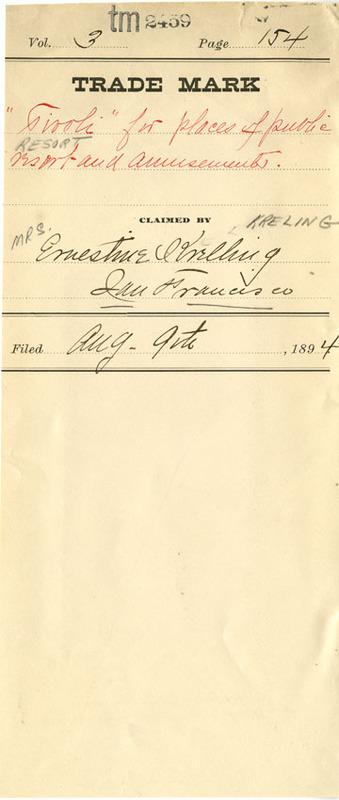 tm 2459
Vol. 3 Page 154
TRADE MARK
"Tivoli" for places of public
RESORT
resort and amusements.
CLAIMED BY
MRS. KRELING
Ernestine Krelling
San Francisco
Filed Aug. 9th, 1894